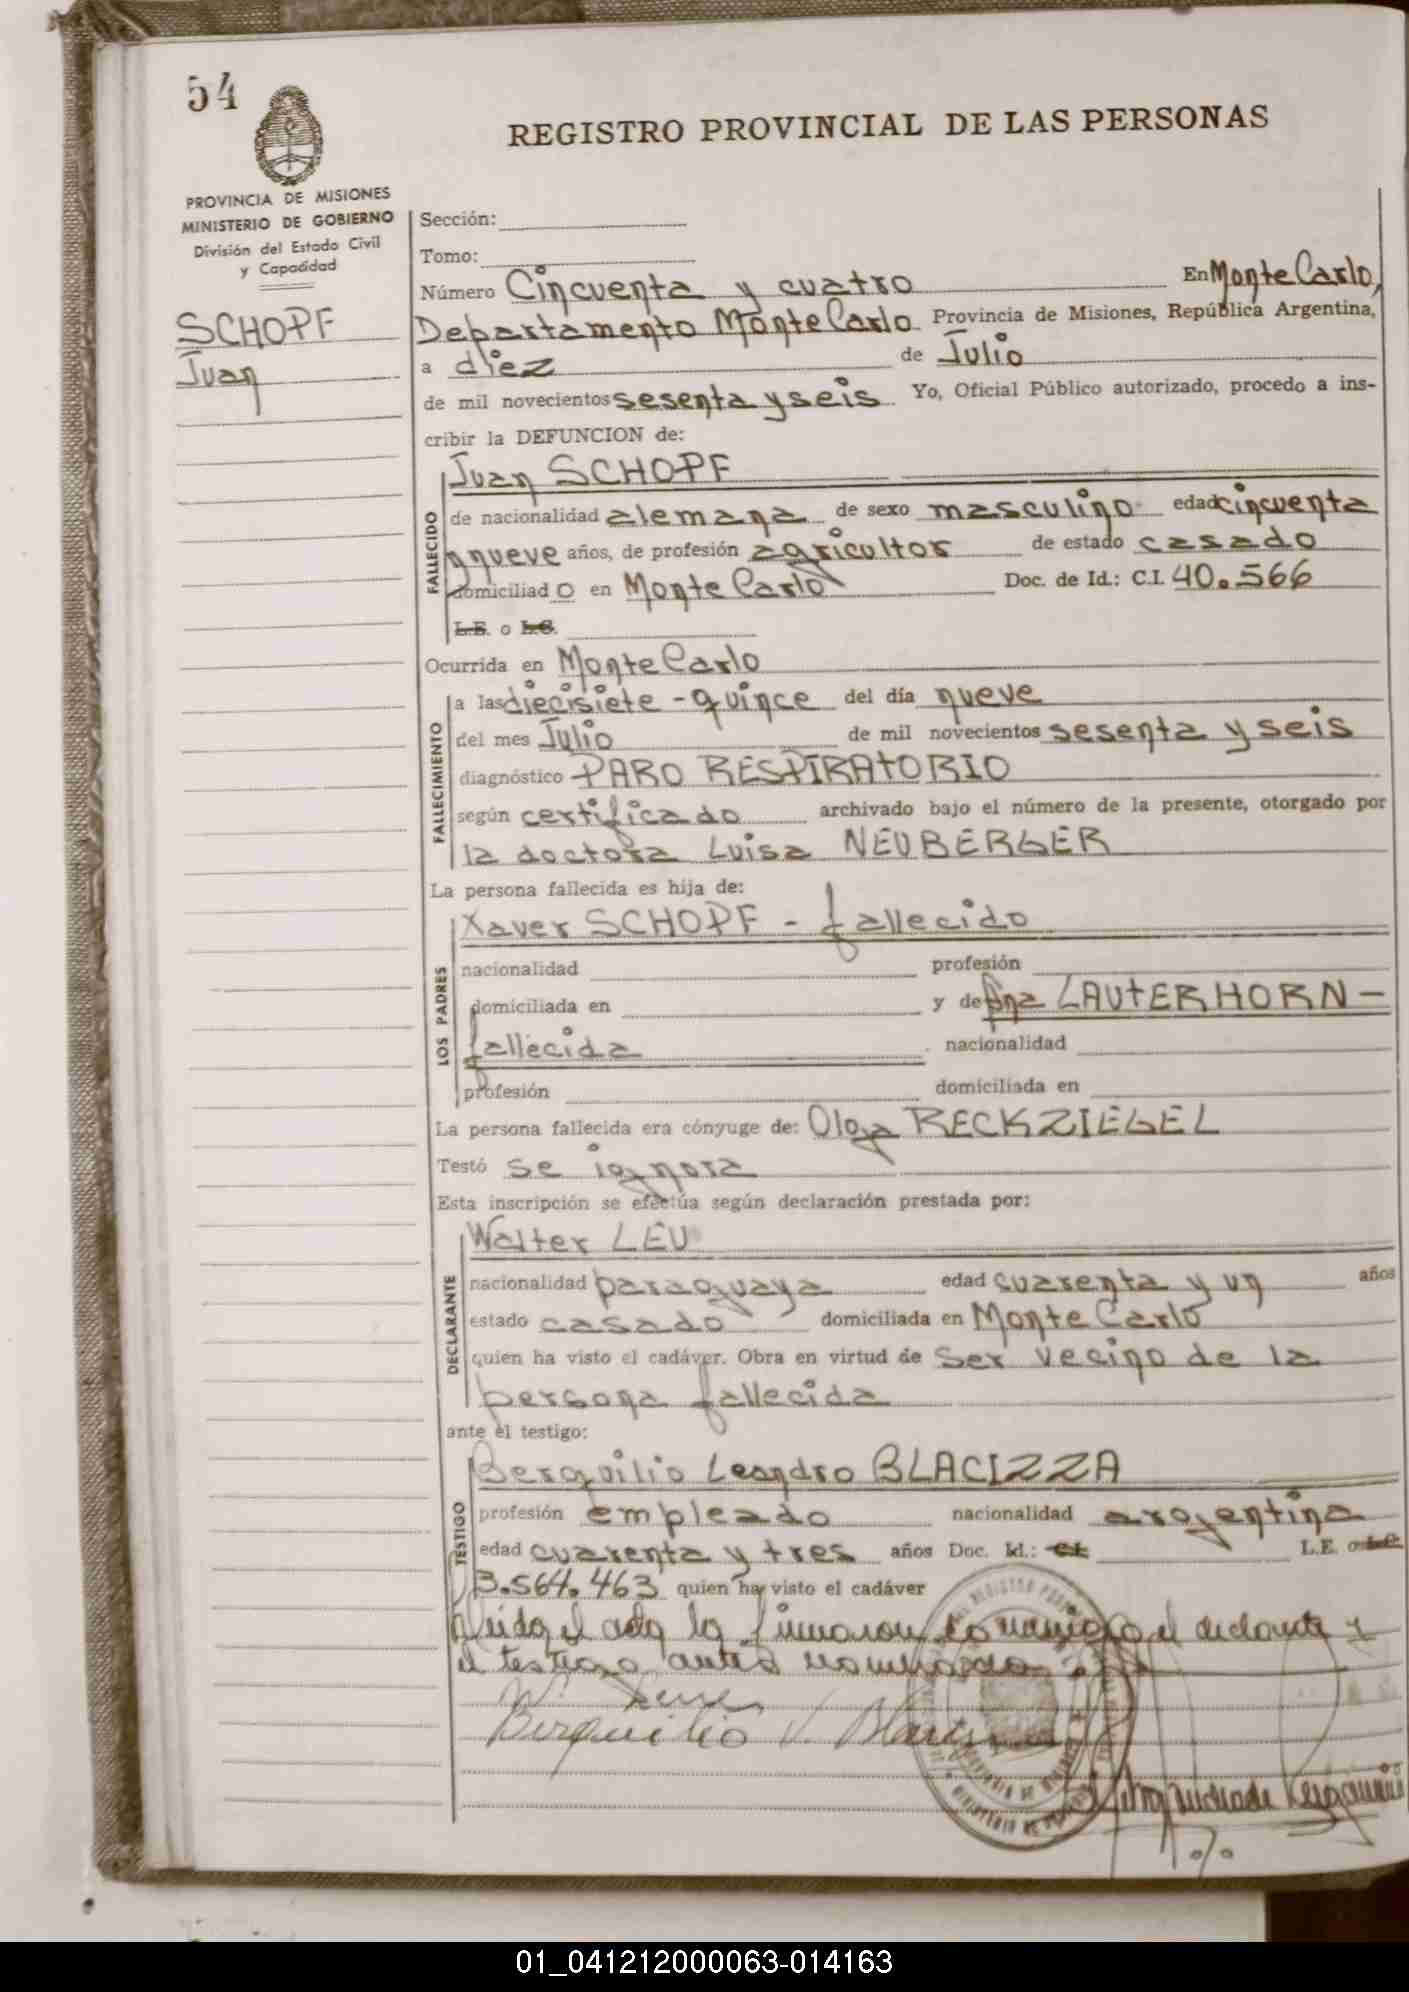 54
REGISTRO PROVINCIAL DE LAS PERSONAS
PROVINCIA DE MISIONES
MINISTERIO DE GOBIERNO
División del Estado Civil
y Capacidad
SCHOPF
Juan
Sección:
Tomo:
Número Cincuenta y cuatro En Monte Carlo,
Departamento Monte Carlo Provincia de Misiones, República Argentina,
a diez de Julio
de mil novecientos sesenta y seis Yo, Oficial Público autorizado, procedo a ins-
cribir la DEFUNCION de:
FALLECIDO
Juan SCHOPF
de nacionalidad alemana de sexo masculino edad cincuenta
y nueve años, de profesión agricultor de estado casado
domiciliad o en Monte Carlo Doc. de Id.: C.I. 40.566
L.E. o L.C.
Ocurrida en Monte Carlo
FALLECIMIENTO
a las diecisiete - quince del día nueve
del mes Julio de mil novecientos sesenta y seis
diagnóstico PARO RESPIRATORIO
según certificado archivado bajo el número de la presente, otorgado por
la doctora Luisa NEUBERGER
La persona fallecida es hija de:
LOS PADRES
Xaver SCHOPF - fallecido
nacionalidad profesión
domiciliada en y de Ana LAUTERHORN -
fallecida nacionalidad
profesión domiciliada en
La persona fallecida era cónyuge de: Olga RECKZIEGEL
Testó se ignora
Esta inscripción se efectúa según declaración prestada por:
DECLARANTE
Walter LEU
nacionalidad paraguaya edad cuarenta y un años
estado casado domiciliada en Monte Carlo
quien ha visto el cadáver. Obra en virtud de ser vecino de la
persona fallecida
ante el testigo:
TESTIGO
Berquilio Leandro BLACIZZA
profesión empleado nacionalidad argentina
edad cuarenta y tres años Doc. Id.: L.E.
3.564.463 quien ha visto el cadáver
Leída el acta la firmaron conmigo el declarante y
el testigo antes nombrado
W. Leu
Berquilio
01_041212000063-014163